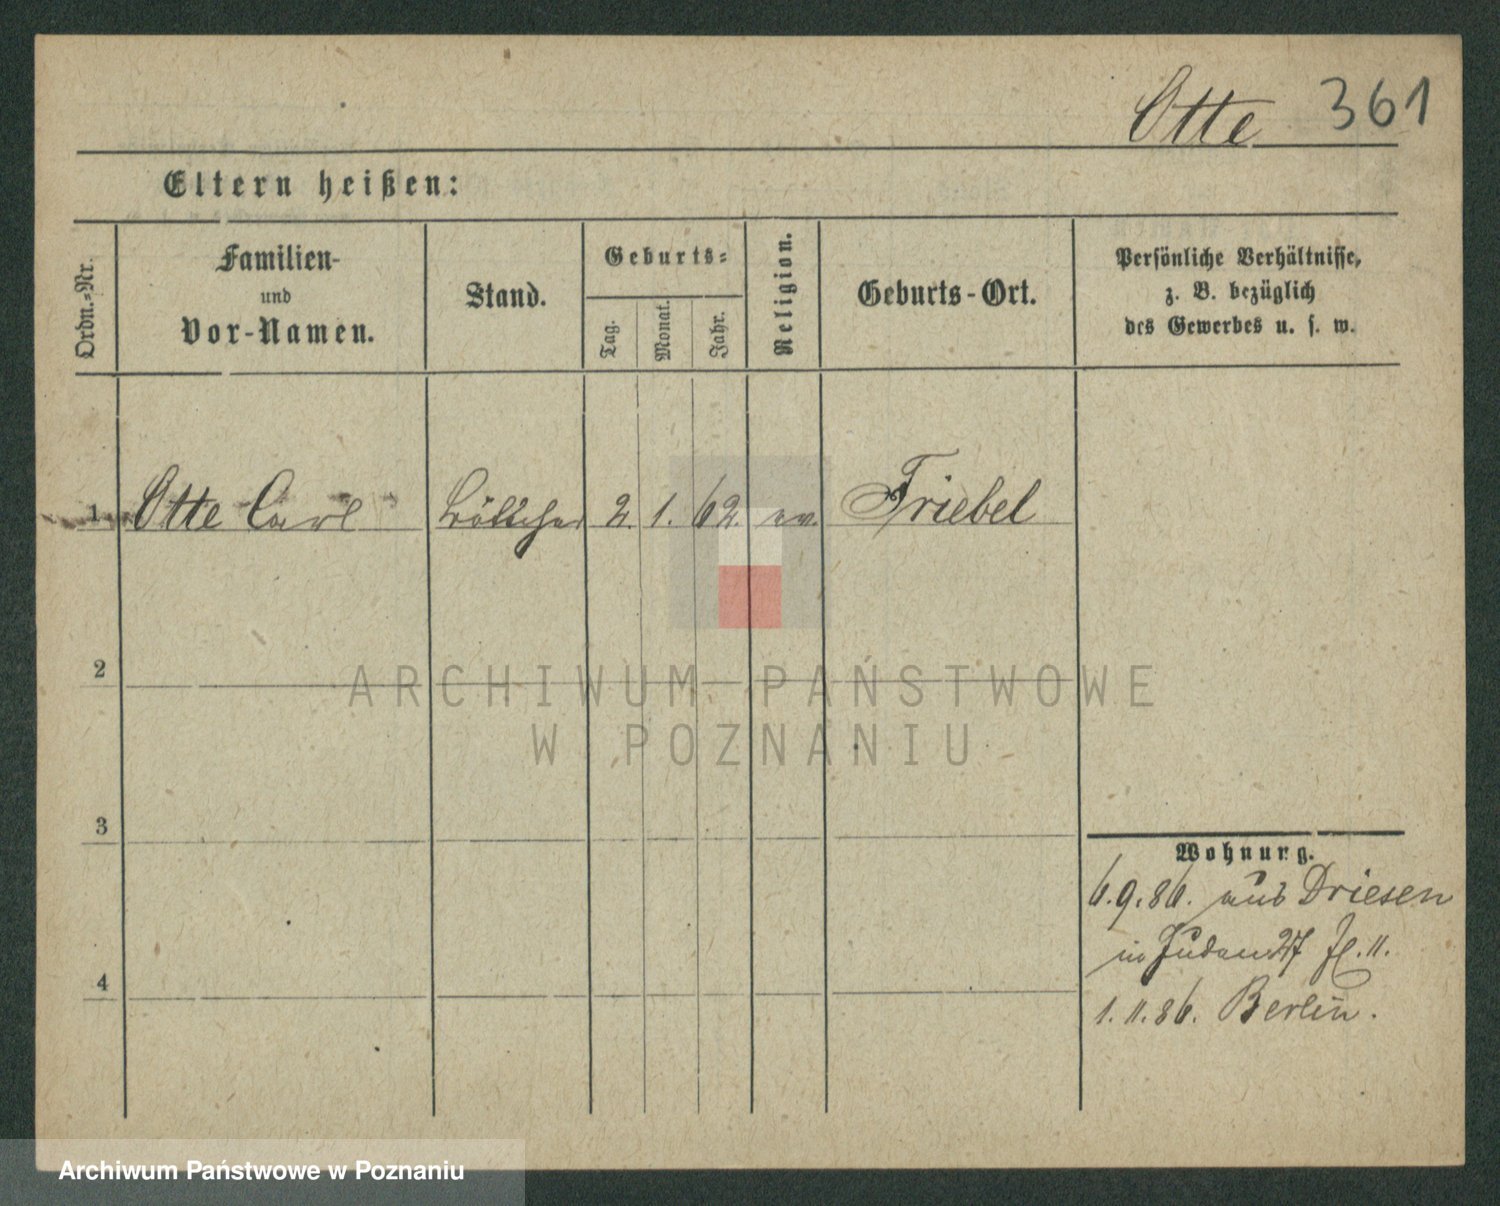 Otte 361
Eltern heißen:
Ordn.-Nr.
Familien-
und
Vor-Namen.
Stand.
Geburts-
Tag.
Monat.
Jahr.
Religion.
Geburts-Ort.
Persönliche Verhältnisse,
z. B. bezüglich
des Gewerbes u. s. w.
1 Otte Carl Böttcher 2. 1. 62. ev. Friebel
2
ARCHIWUM PAŃSTWOWE
W POZNANIU
3
Wohnung.
6.9.86. aus Driesen
in Juden 27 Fl. II.
4
1.11.86. Berlin.
Archiwum Państwowe w Poznaniu